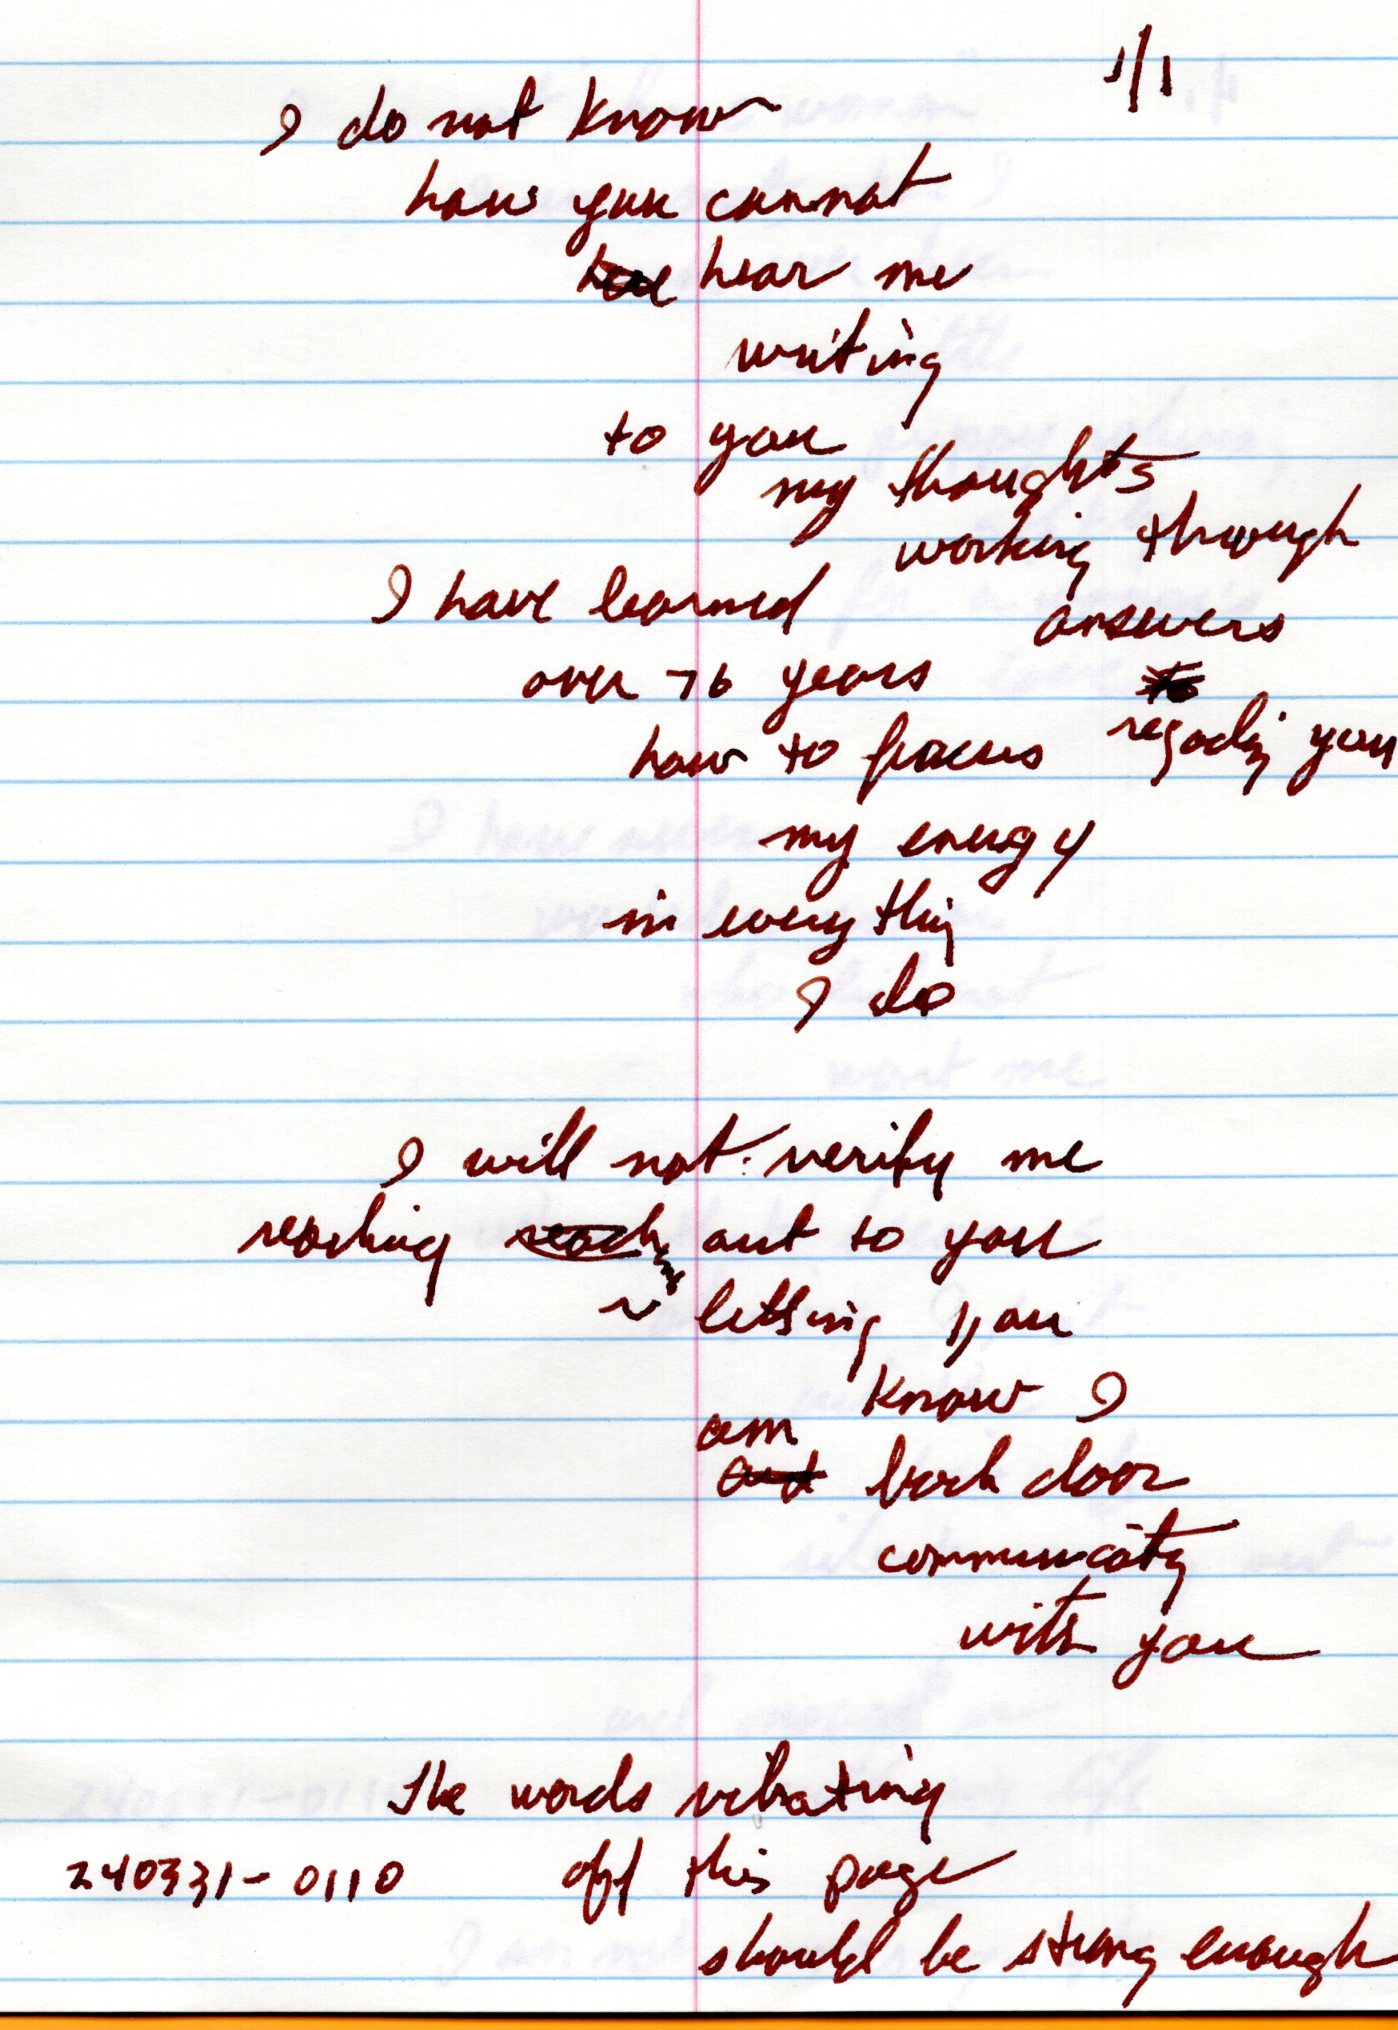 1/1
I do not know
how you cannot
hear me
writing
to you
my thoughts
working through
answers
regarding you
I have learned
over 76 years
how to focus
my energy
in everything
I do
I will not verify me
reaching out to you
letting you
know I
am
back door
communicating
with you
The words vibrating
off this page
should be strong enough
240331-0110